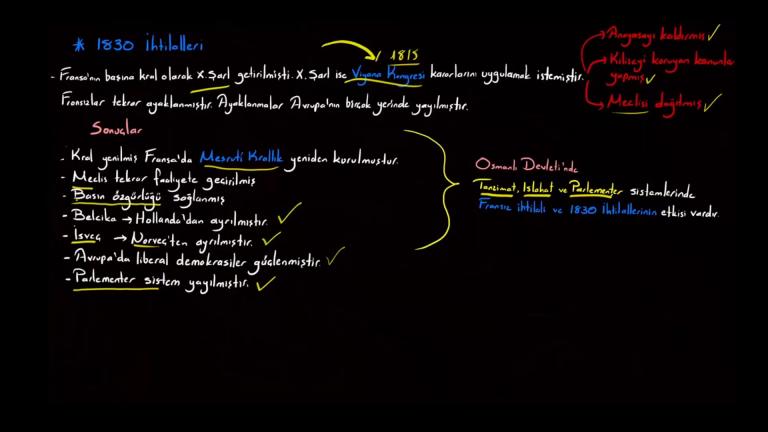 * 1830 İhtilalleri
1815
- Fransa'nın başına kral olarak X. Şarl getirilmişti. X. Şarl ise Viyana Kongresi kararlarını uygulamak istemiştir.
Fransızlar tekrar ayaklanmıştır. Ayaklanmalar Avrupa'nın birçok yerinde yayılmıştır.
Anayasayı kaldırmış ✓
Kiliseyi koruyan kanunlar
yapmış ✓
Meclisi dağıtmış ✓
Sonuçlar
- Kral yenilmiş Fransa'da Meşruti Krallık yeniden kurulmuştur.
- Meclis tekrar faaliyete geçirilmiş
- Basın özgürlüğü sağlanmış
- Belçika → Hollanda'dan ayrılmıştır. ✓
- İsveç → Norveç'ten ayrılmıştır. ✓
- Avrupa'da liberal demokrasiler güçlenmiştir. ✓
- Parlementer sistem yayılmıştır. ✓
Osmanlı Devleti'nde
Tanzimat, Islahat ve Parlementer sistemlerinde
Fransız ihtilali ve 1830 İhtilallerinin etkisi vardır.